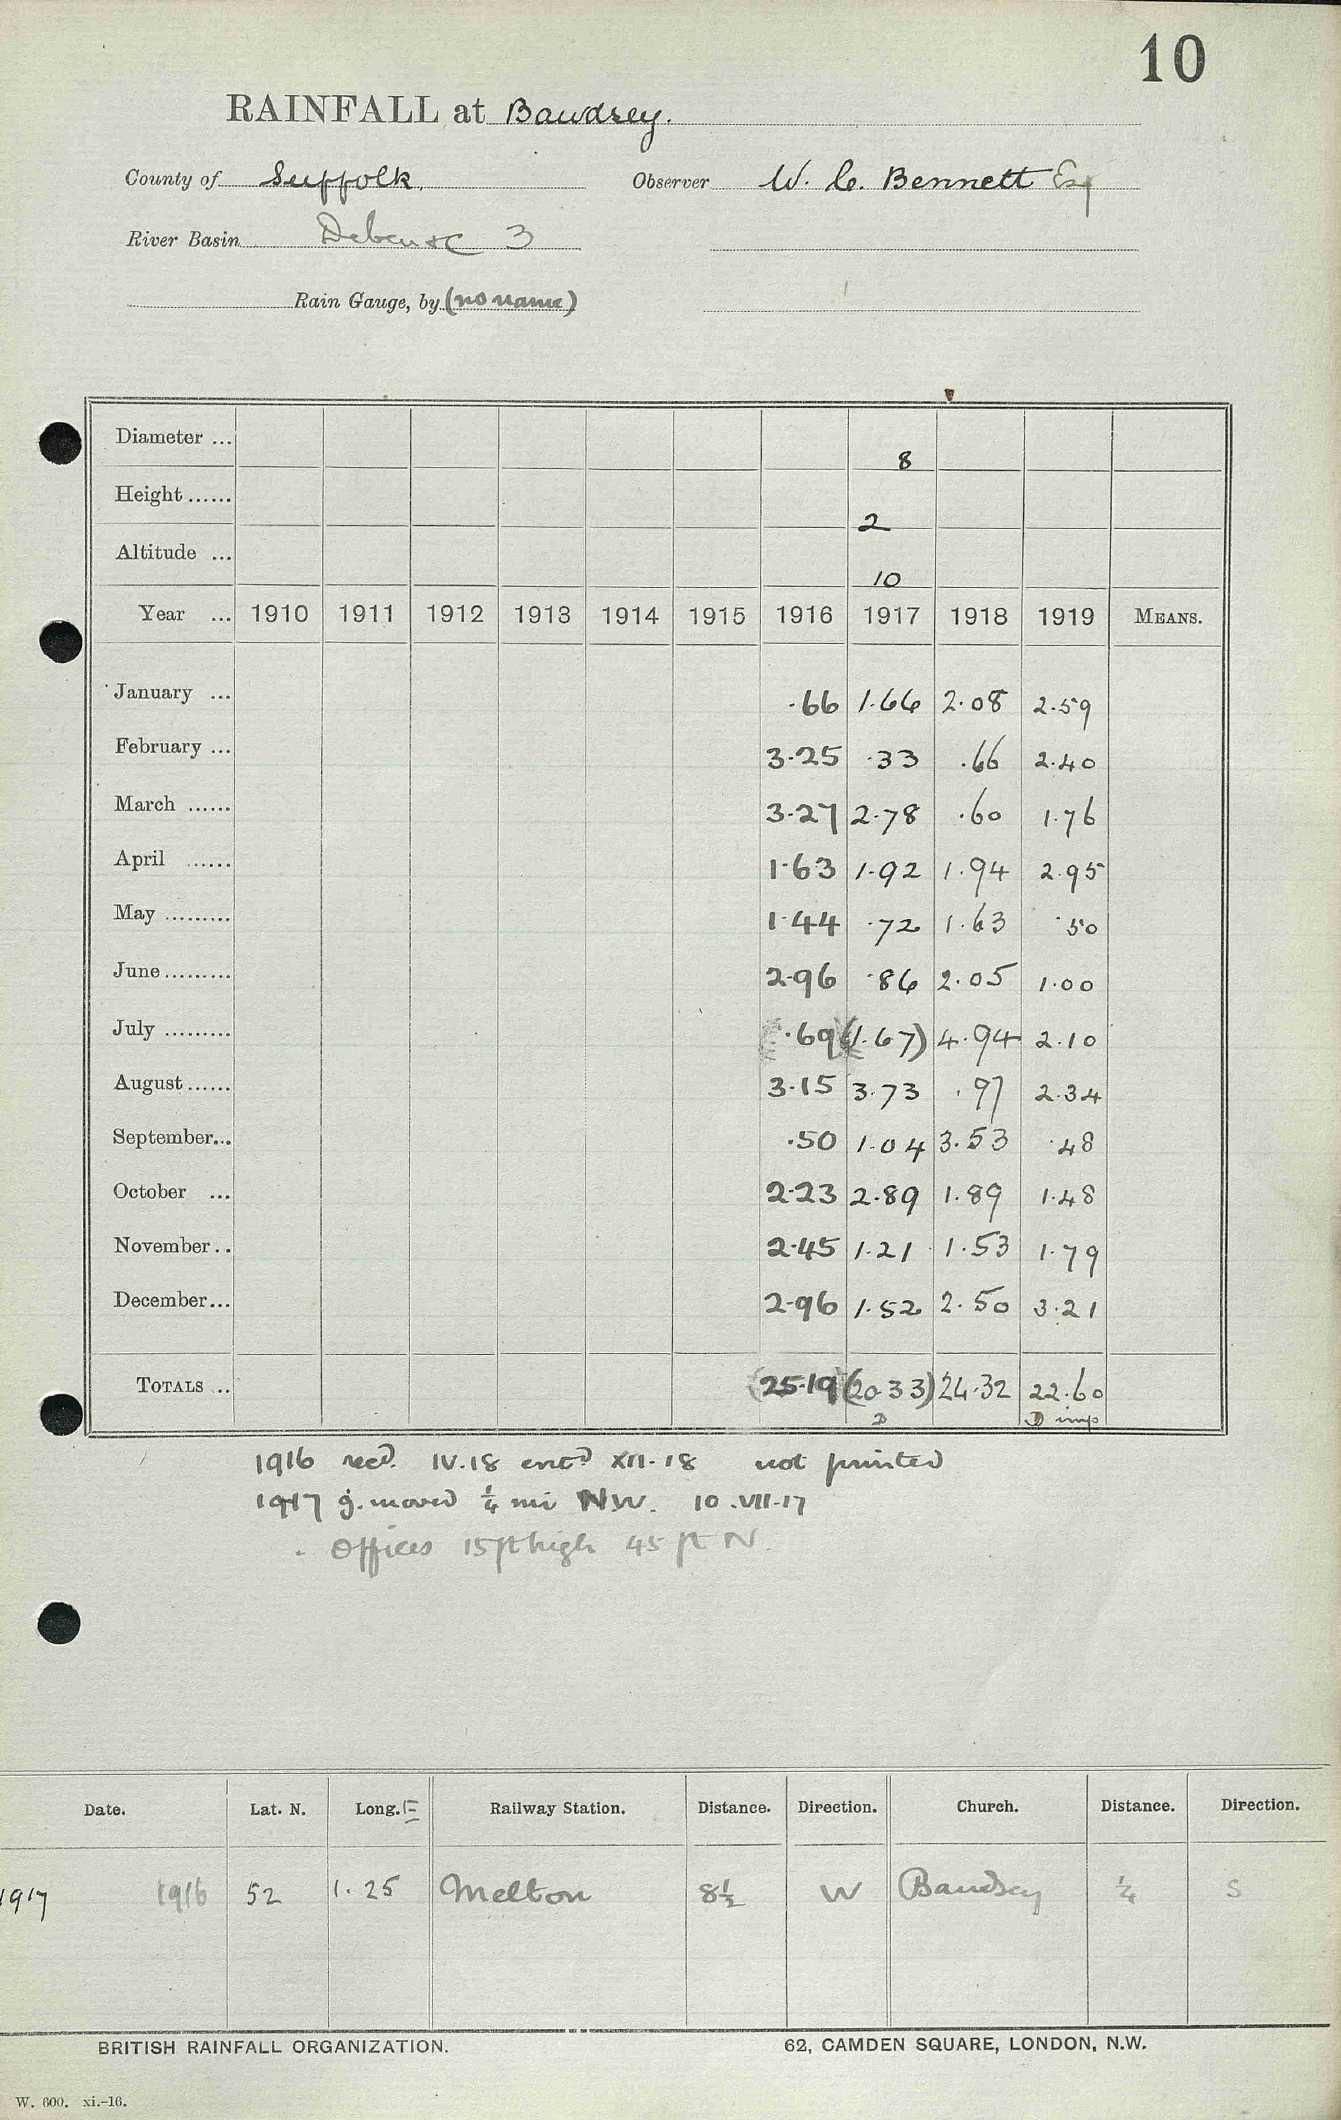 10
RAINFALL at Bawdsey.
County of Suffolk. Observer W. C. Bennett Esq
River Basin Deben &c 3
Rain Gauge, by (no name)
Diameter ... 8
Height ...... 2
Altitude ... 10
Year ... 1910 1911 1912 1913 1914 1915 1916 1917 1918 1919 MEANS.
January ... .66 1.66 2.08 2.59
February ... 3.25 .33 .66 2.40
March ...... 3.27 2.78 .60 1.76
April ...... 1.63 1.92 1.94 2.95
May ......... 1.44 .72 1.63 .50
June ......... 2.96 .86 2.05 1.00
July ......... .69 (1.67) 4.94 2.10
August ...... 3.15 3.73 .97 2.34
September... .50 1.04 3.53 .48
October ... 2.23 2.89 1.89 1.48
November .. 2.45 1.21 1.53 1.79
December... 2.96 1.52 2.50 3.21
TOTALS .. (25.19) (20.33) 24.32 22.60
D D imp
1916 recd. IV.18 entd XII.18 not printed
1917 g. moved ¼ mi NW. 10.VII.17
Offices 15ft high 45 ft N.
Date. Lat. N. Long. E Railway Station. Distance. Direction. Church. Distance. Direction.
1917 1916 52 1.25 Melton 8½ W Bawdsey ¼ S
BRITISH RAINFALL ORGANIZATION. 62, CAMDEN SQUARE, LONDON, N.W.
W. 600. xi.-16.